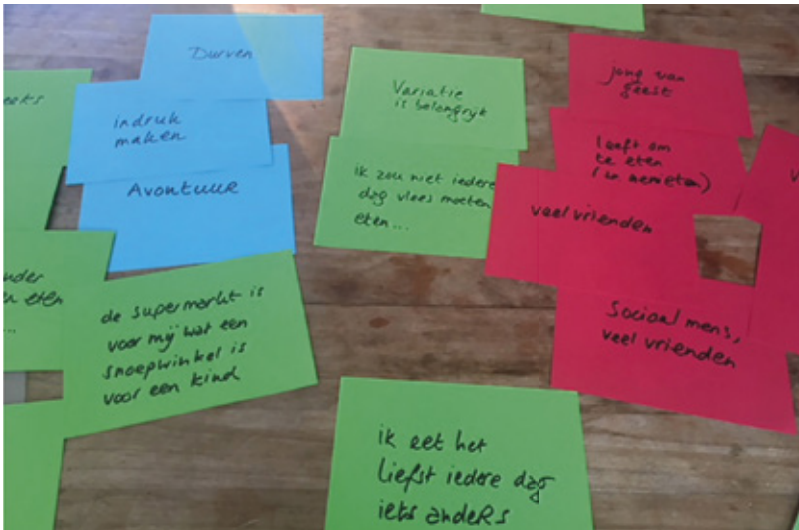 Durven
indruk
maken
Avontuur
de supermarkt is
voor mij wat een
snoepwinkel is
voor een kind
Variatie
is belangrijk
ik zou niet iedere
dag vlees moeten
eten...
ik eet het
liefst iedere dag
iets anders
jong van
geest
leeft om
te eten
(en genieten)
veel vrienden
Sociaal mens,
veel vrienden
eten
...